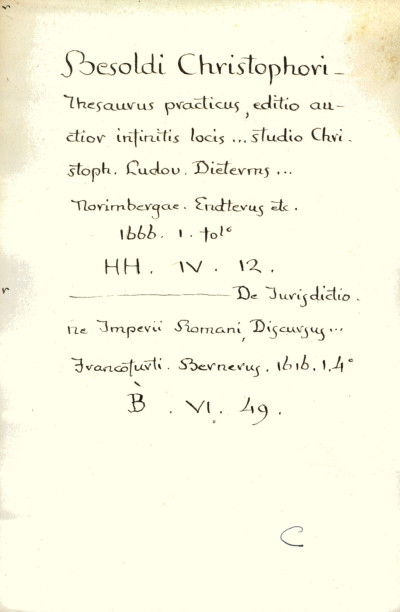 Besoldi Christophori –
Thesaurus practicus, editio au-
ctior infinitis locis ... studio Chri-
stoph. Ludov. Dieterms ...
Norimbergae. Endterus etc.
1666. 1. folº
HH. IV. 12.
———— De Jurisdictio-
ne Imperii Romani, Discursus ...
Francofurti. Bernerus. 1616. 1. 4º
B̀. VI. 49.
C